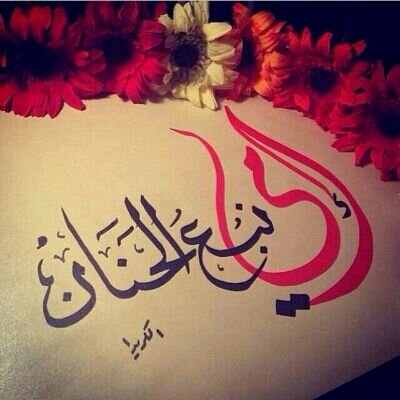 أمي نبع الحَنَان